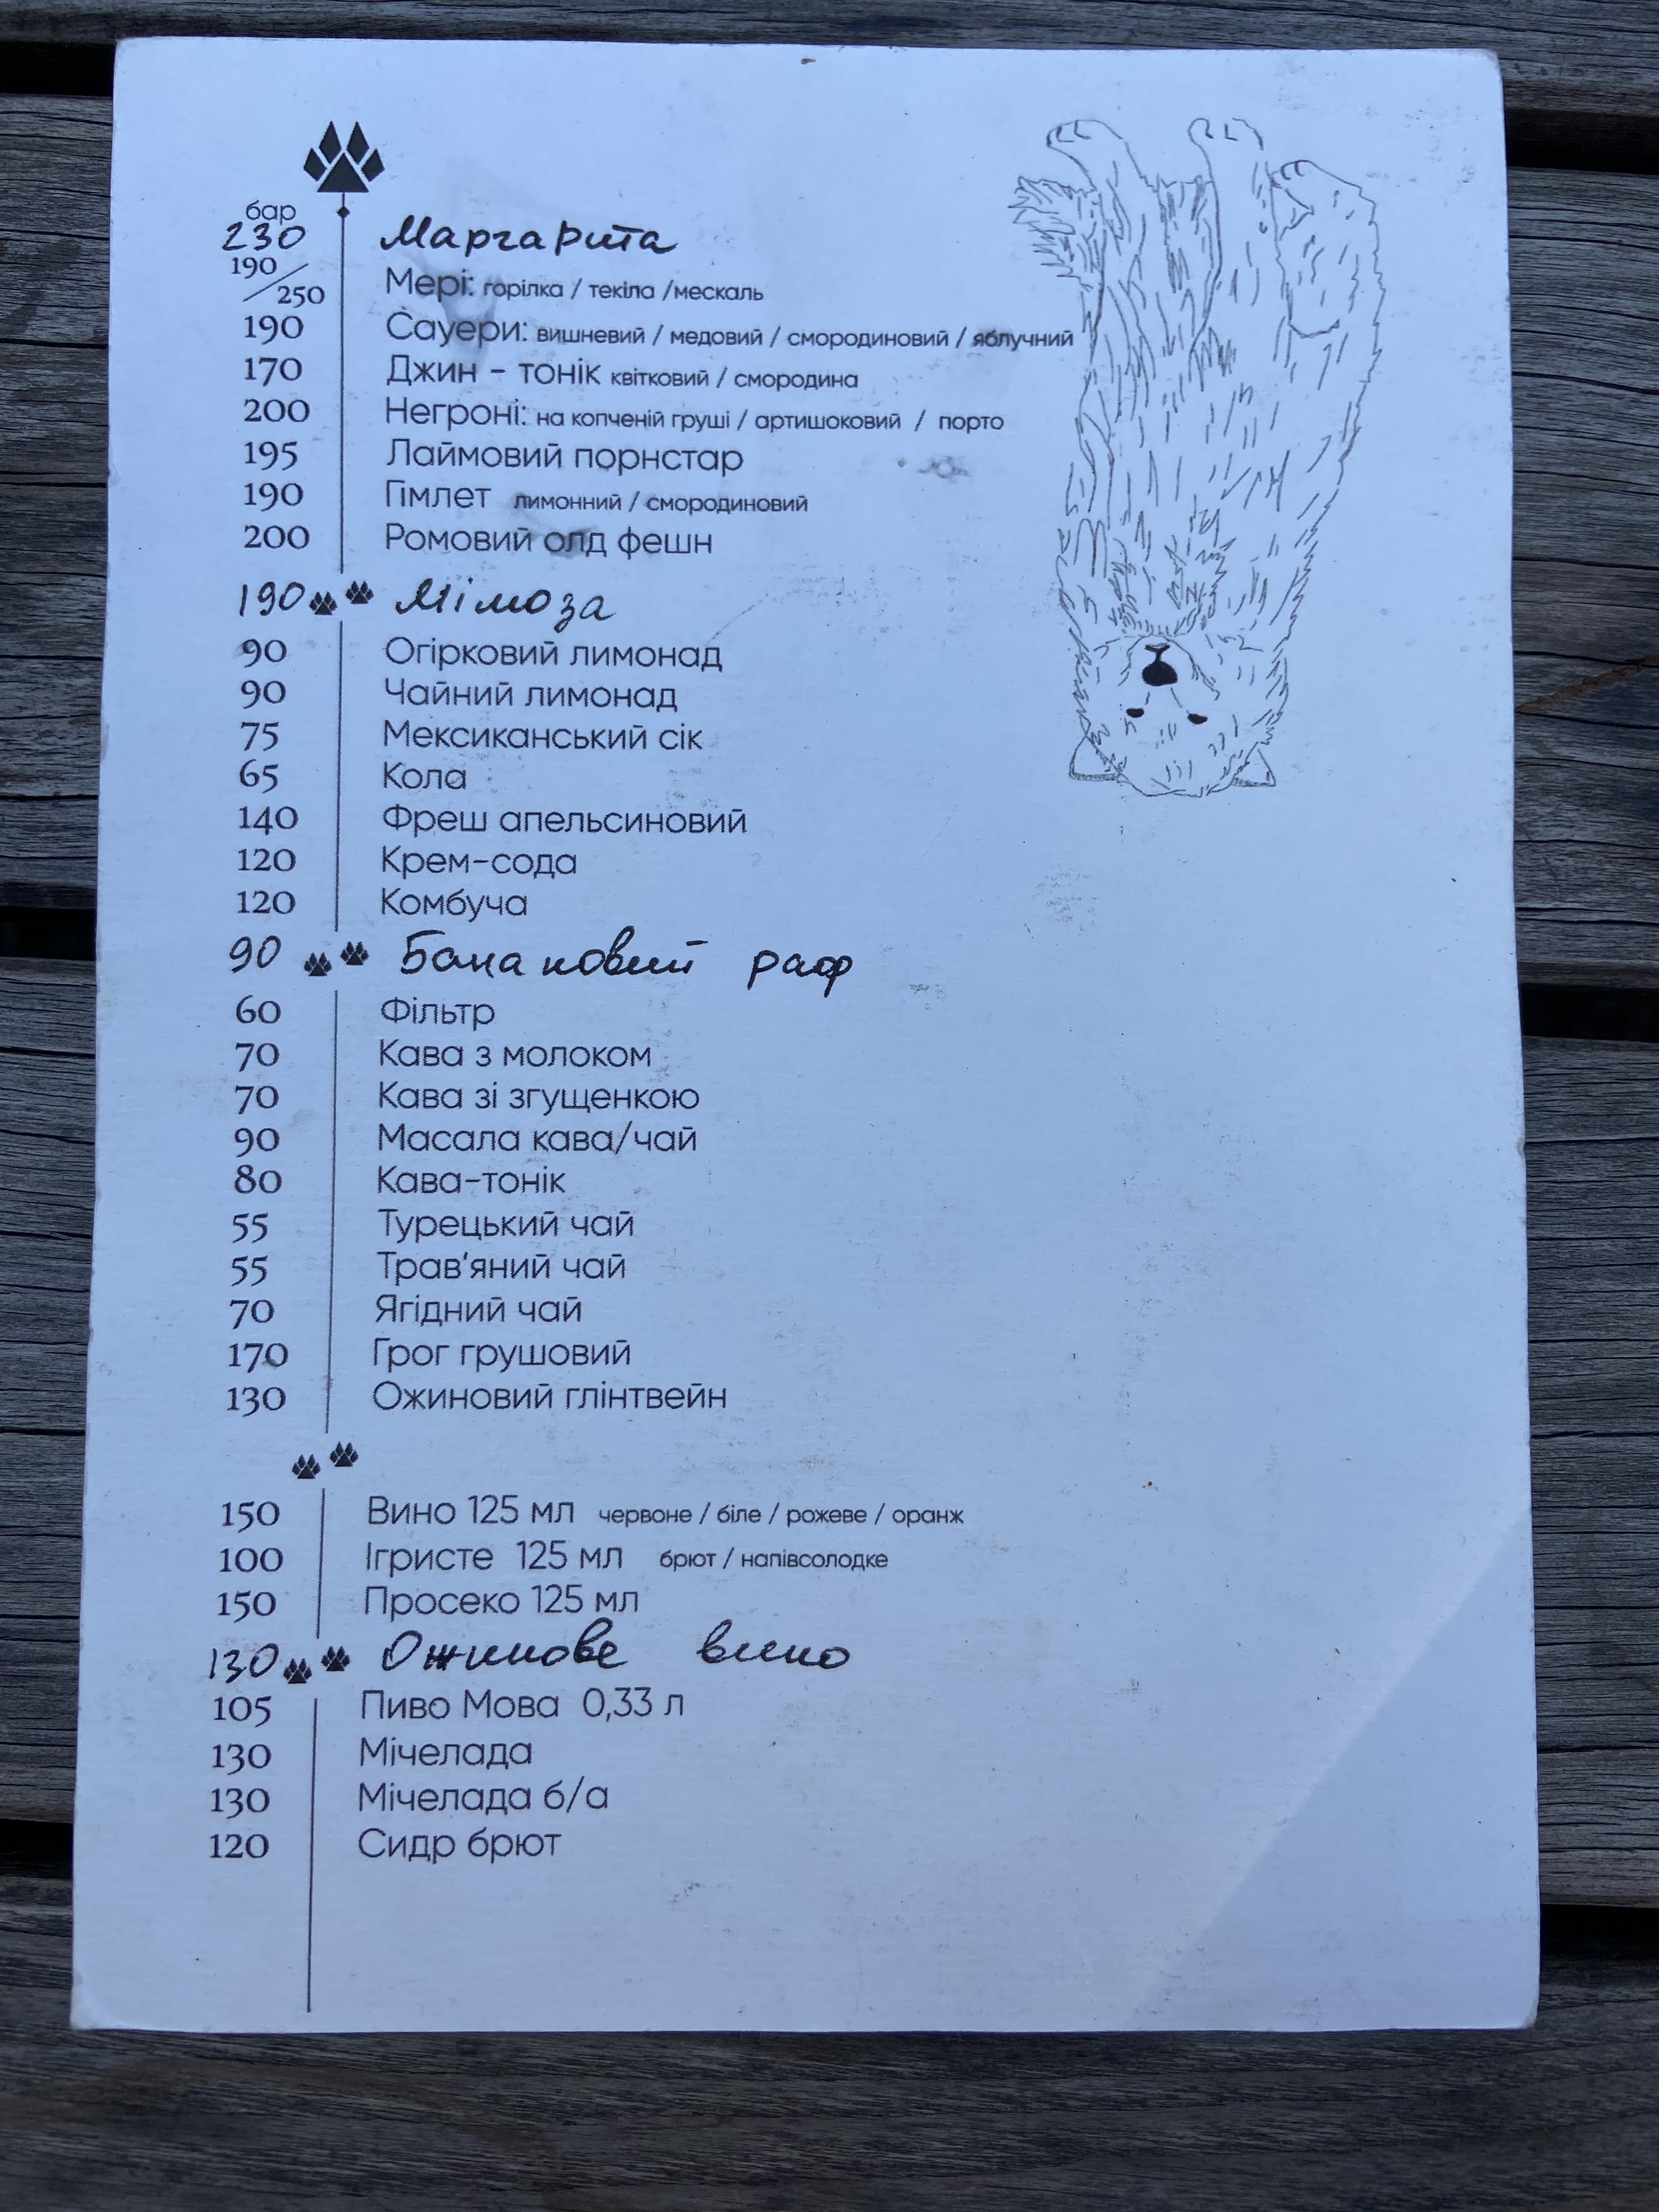 бар
230 Маргарита
190/250 Мері: горілка / текіла /мескаль
190 Сауери: вишневий / медовий / смородиновий / яблучний
170 Джин - тонік квітковий / смородина
200 Негроні: на копченій груші / артишоковий / порто
195 Лаймовий порнстар
190 Гімлет лимонний / смородиновий
200 Ромовий олд фешн
190 Мімоза
90 Огірковий лимонад
90 Чайний лимонад
75 Мексиканський сік
65 Кола
140 Фреш апельсиновий
120 Крем-сода
120 Комбуча
90 Банановий раф
60 Фільтр
70 Кава з молоком
70 Кава зі згущенкою
90 Масала кава/чай
80 Кава-тонік
55 Турецький чай
55 Трав'яний чай
70 Ягідний чай
170 Грог грушовий
130 Ожиновий глінтвейн
150 Вино 125 мл червоне / біле / рожеве / оранж
100 Ігристе 125 мл брют / напівсолодке
150 Просеко 125 мл
130 Ожинове вино
105 Пиво Мова 0,33 л
130 Мічелада
130 Мічелада б/а
120 Сидр брют